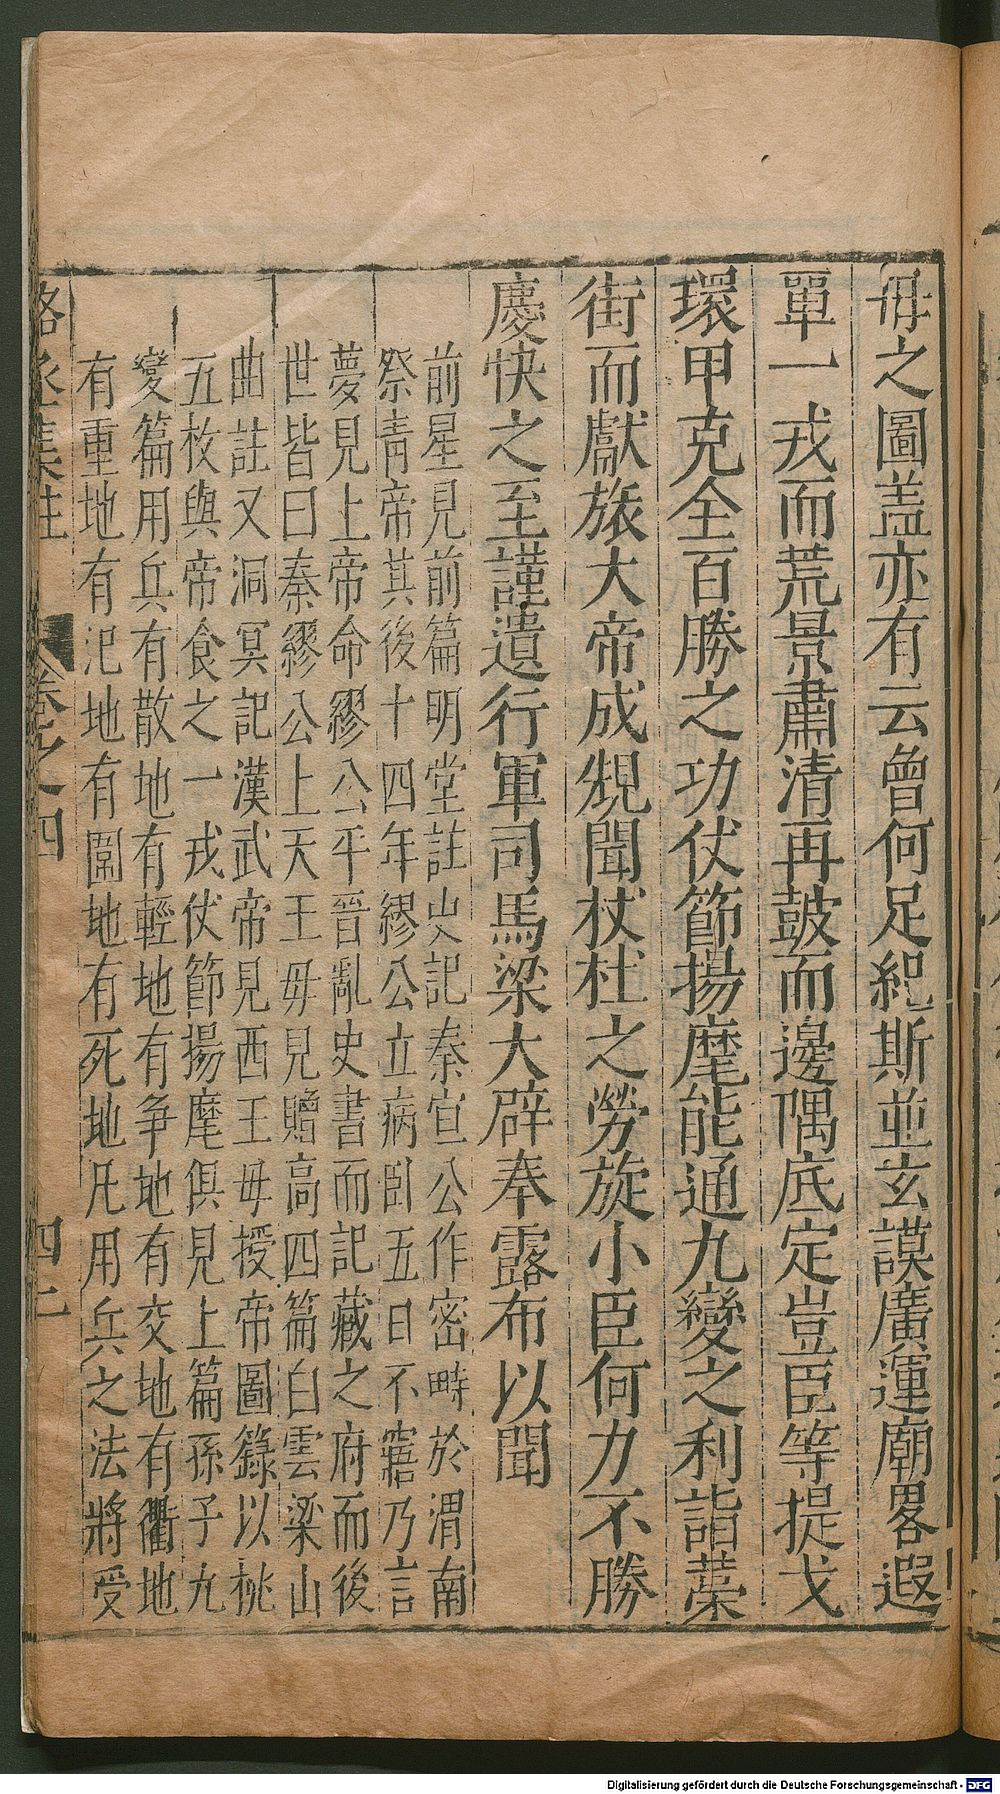 毋之圖盖亦有云曾何足紀斯並玄謨廣運廟畧遐
單一戎而荒景肅清再鼓而邊隅底定豈臣等提戈
環甲克全百勝之功仗節揚麾能通九變之利詣藁
街而獻旅大帝成䂓聞杕杜之勞旋小臣何力不勝
慶快之至謹遣行軍司馬梁大辟奉露布以聞
前星見前篇明堂註史記秦宣公作密畤於渭南
祭青帝其後十四年繆公立病臥五日不寤乃言
夢見上帝命繆公平晉亂史書而記藏之府而後
世皆曰秦繆公上天王毋見贈高四篇白雲梁山
曲註又洞冥記漢武帝見西王毋授帝圖籙以桃
五枚與帝食之一戎仗節揚麾俱見上篇孫子九
變篇用兵有散地有輕地有争地有交地有衢地
有重地有汜地有圍地有死地凡用兵之法將受
集註
卷之四
四二
Digitalisierung gefördert durch die Deutsche Forschungsgemeinschaft - DFG